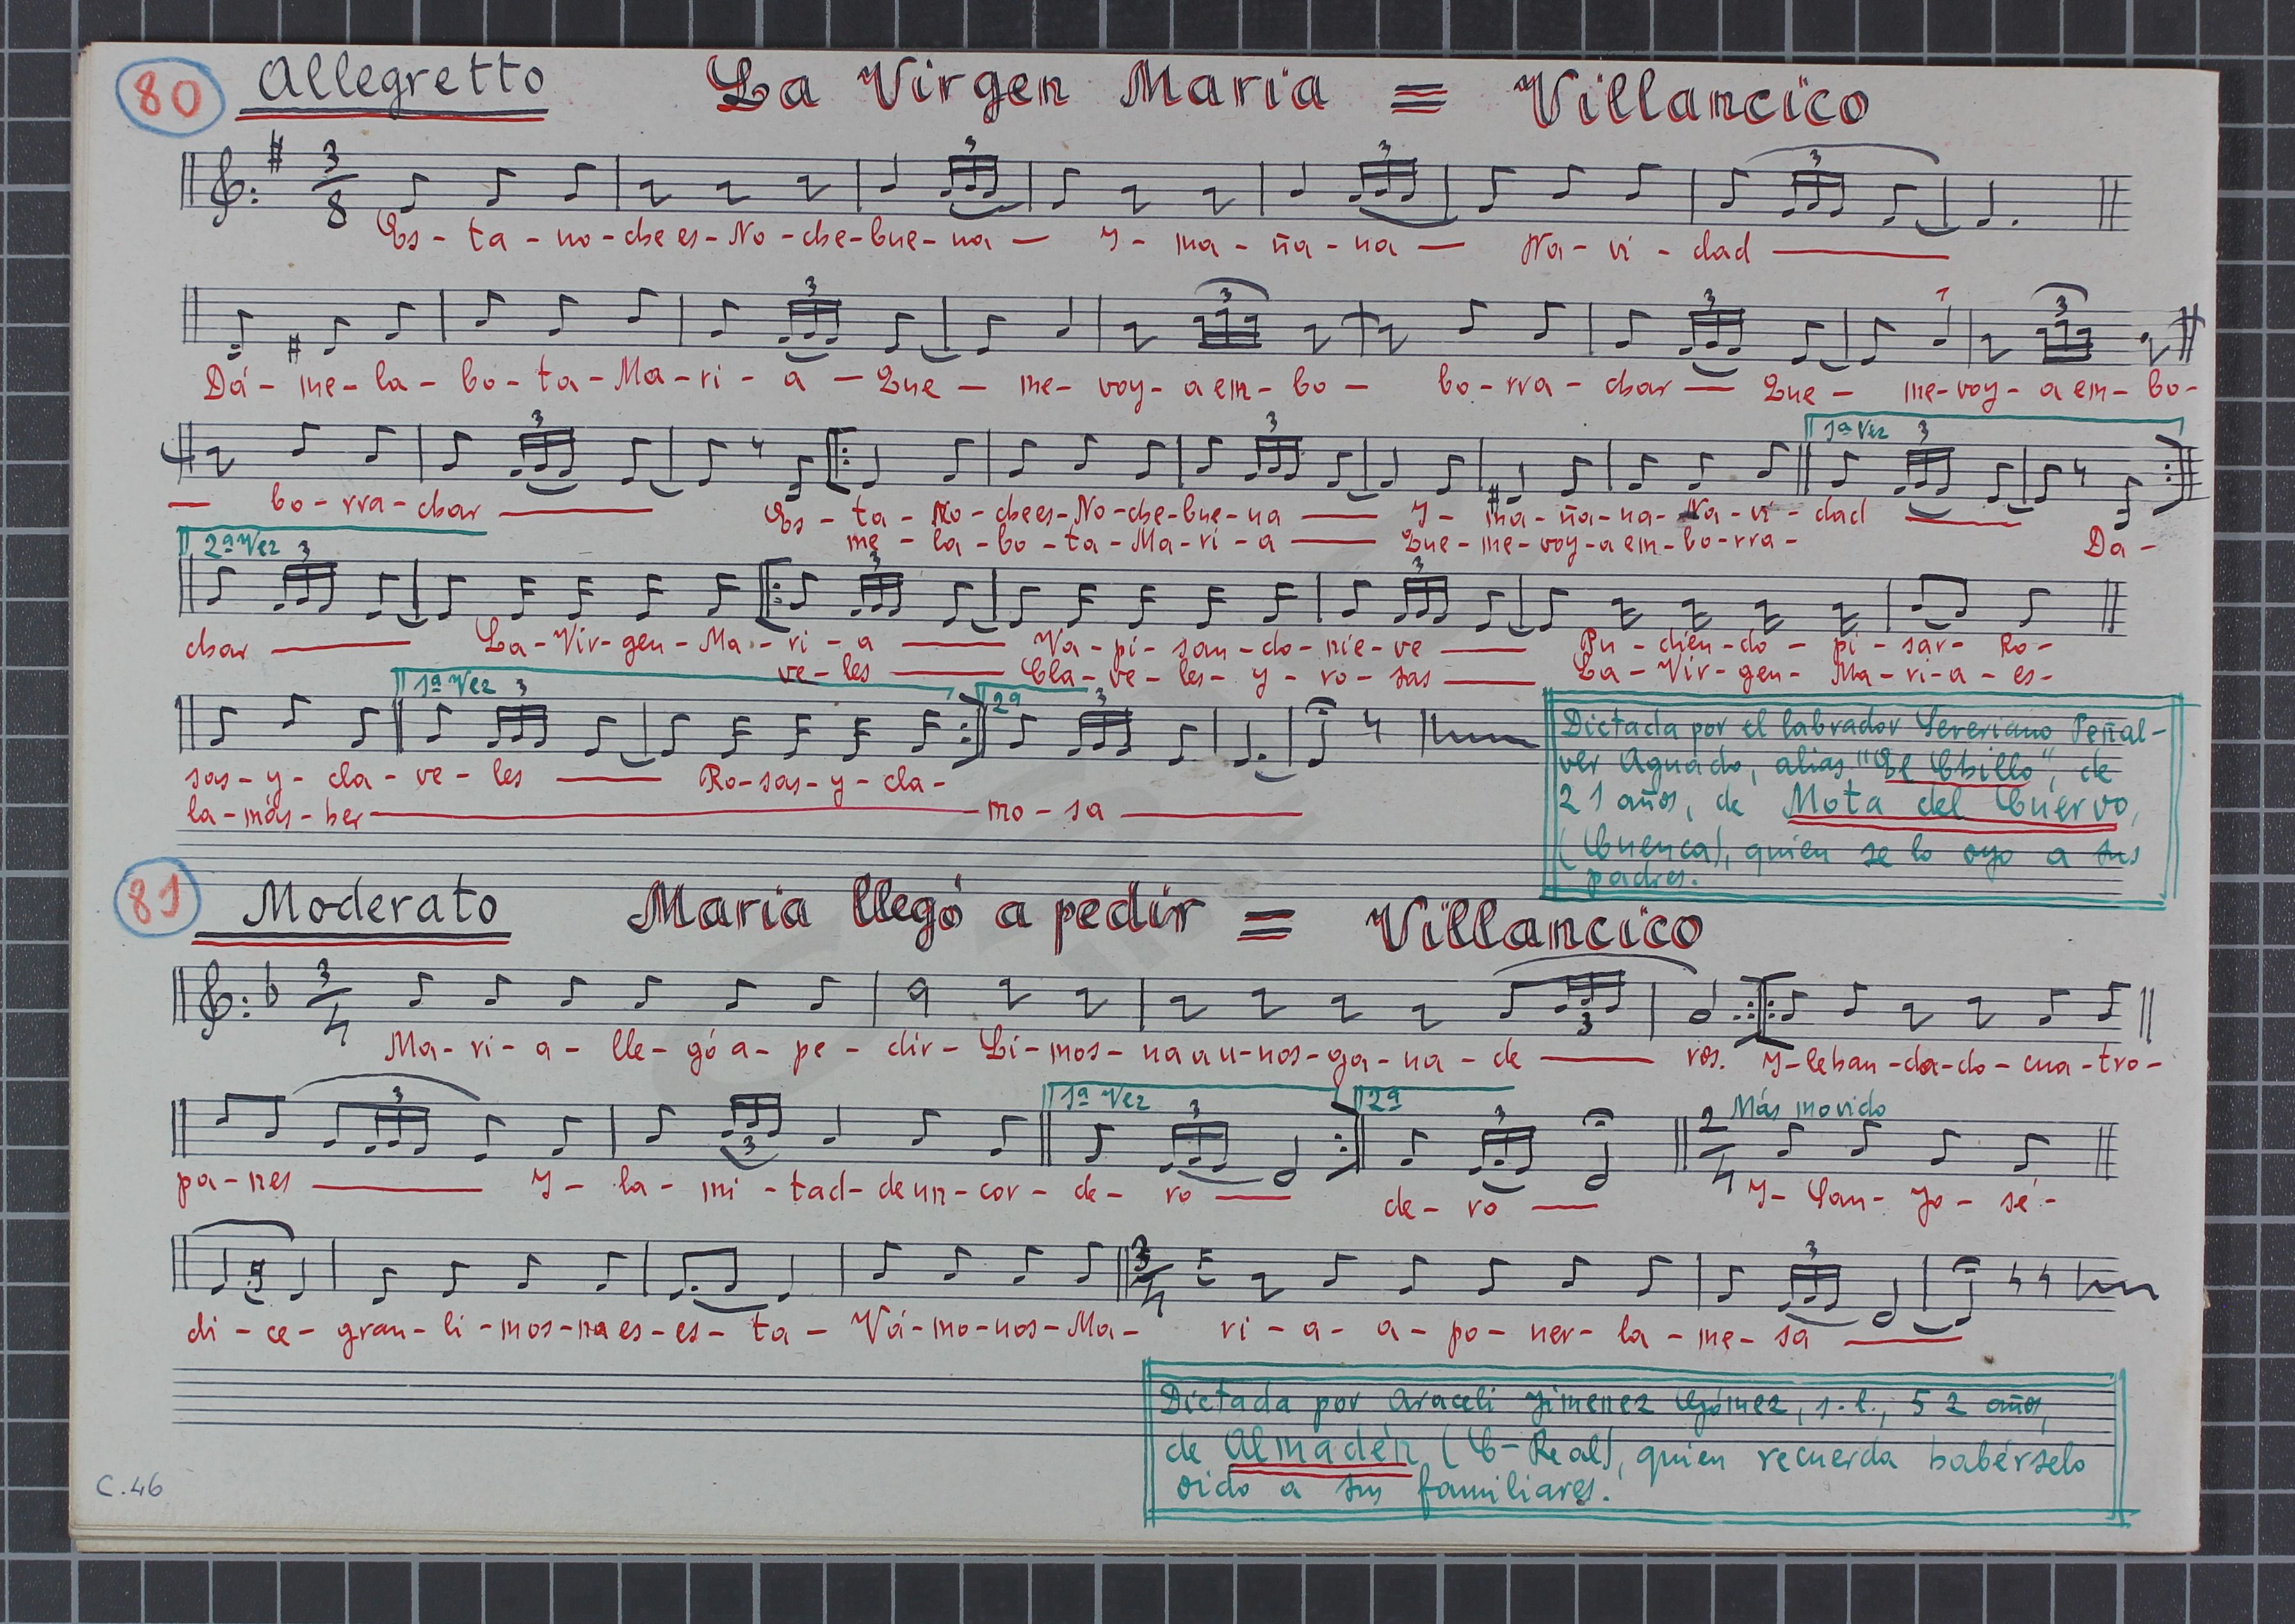 80 Allegretto La Virgen Maria = Villancico
3
3 3 3 3
8
Es - ta - no - che es - No - che - bue - na — Y - ma - ña - na — Na - vi - dad —
3 3 3 1 3
Dá - me - la - bo - ta - Ma - ri - a — Que — me - voy - a em - bo - bo - rra - char — Que — me - voy - a em - bo -
3 3 1ª Vez 3
— bo - rra - char — Es - ta - No - che es - No - che - bue - na — Y - ma - ña - na - Na - vi - dad —
me - la - bo - ta - Ma - ri - a — Que - me - voy - a em - bo - rra - Da -
2ª Vez 3 3 3
char — La - Vir - gen - Ma - ri - a — Va - pi - san - do - nie - ve — Pu - dien - do - pi - sar - Ro -
ve - les — Cla - ve - les - y - ro - sas — La - Vir - gen - Ma - ri - a - es -
1ª Vez 3 2ª 3
sas - y - cla - ve - les — Ro - sas - y - cla -
la - más - her — mo - sa —
Dictada por el labrador Severiano Peñal-
ver Aguado, alias "El Chillo", de
21 años, de Mota del Cuervo,
(Cuenca), quien se lo oyo a sus
padres.
81 Moderato Maria llegó a pedir = Villancico
3
4
3
Ma - ri - a - lle - gó a - pe - dir - Li - mos - na a u - nos - ga - na - de — ros. Y - le han - da - do - cua - tro -
3 3 1ª Vez 3 2ª 3 2 Más movido
4
pa - nes — Y - la - mi - tad - de un - cor - de - ro — de - ro — Y - San - Jo - sé -
3 3
4
di - ce - gran - li - mos - na es - es - ta - Vá - mo - nos - Ma - ri - a - a - po - ner - la - me - sa —
Dictada por Araceli Jimenez Gómez, s. l., 52 años,
de Almadén (C-Real), quien recuerda habérselo
oido a sus familiares.
C.46